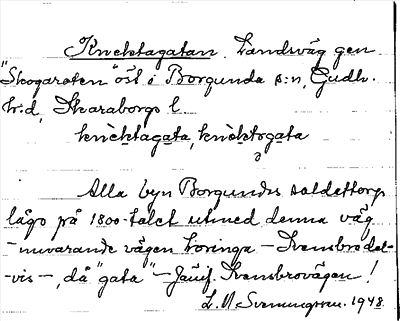 Knektagatan. Landsväg gen
"Skogaroten" öst i Borgunda s:n, Gudh.
h:d, Skaraborgs l.
knèktagata, knèktəgata
Alla byn Borgundas soldattorp
lågo på 1800-talet utmed denna väg,
-nuvarande vägen Koringa - Stenbro del-
-vis -, då "gata" - Jämf. Stenbrovägen!
L. M. Svenungsson. 1948